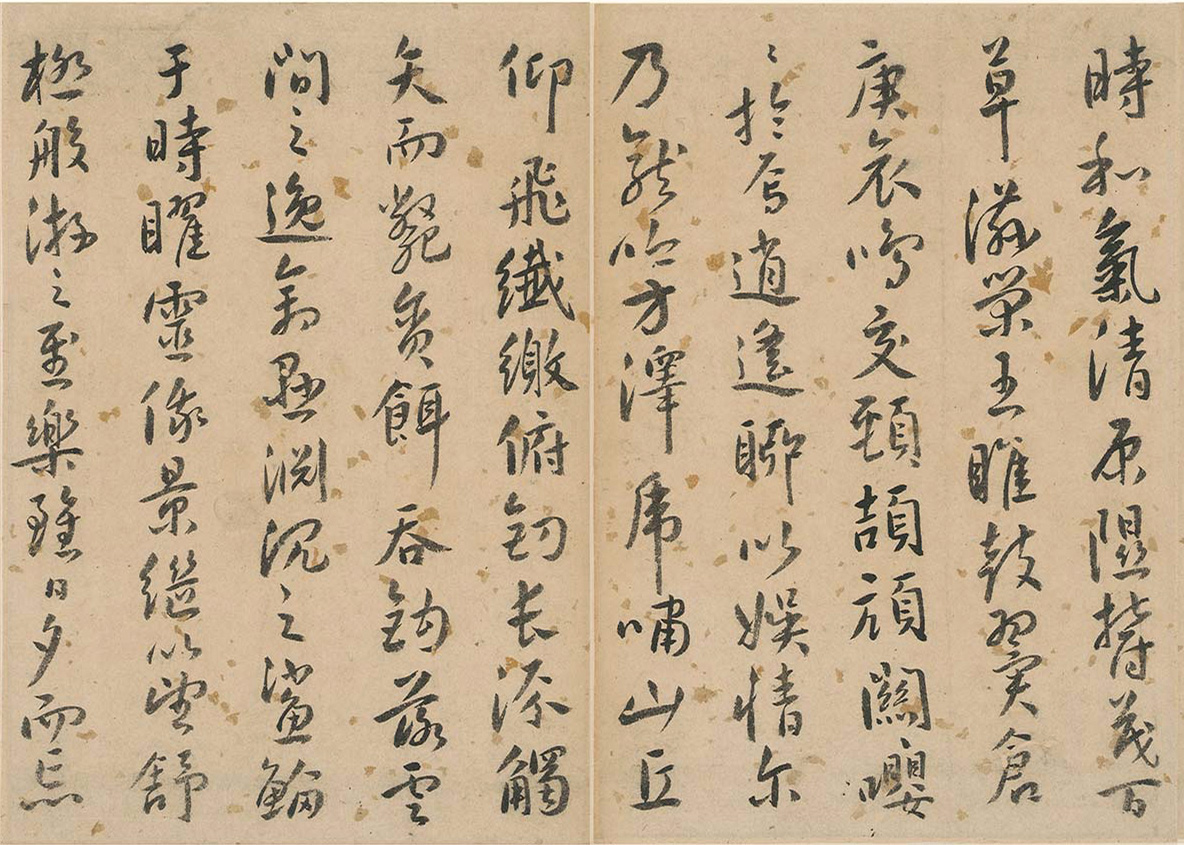 時和氣清原隰欝茂百
草滋榮王雎鼓翼倉
庚哀鳴交頸頡頏關嚶
〻於焉逍遙聊以娛情尔
乃龍吟方澤虎嘯山丘
仰飛纖繳俯釣長流觸
矢而斃貪餌吞鈎落雲
間之逸禽懸淵沉之鯊鰡
于時曜靈俄景繼以望舒
極般游之至樂雖日夕而忘